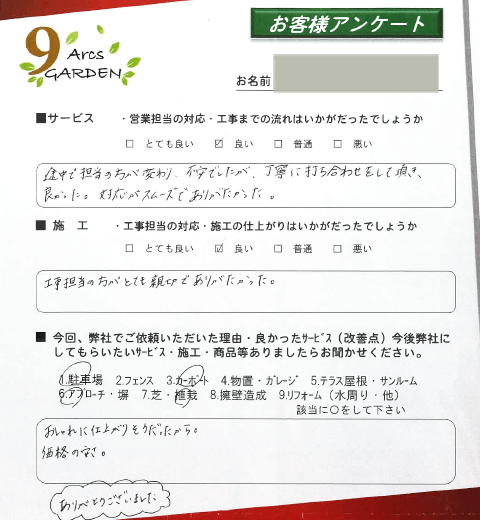 お客様アンケート
9 Arcs GARDEN
お名前
■サービス ・営業担当の対応・工事までの流れはいかがだったでしょうか
□ とても良い ☑ 良い □ 普通 □ 悪い
途中で担当の方が変わり、不安でしたが、丁寧に打ち合わせをして頂き、
良かった。対応がスムーズでありがたかった。
■施 工 ・工事担当の対応・施工の仕上がりはいかがだったでしょうか
□ とても良い ☑ 良い □ 普通 □ 悪い
工事担当の方がとても親切でありがたかった。
■ 今回、弊社でご依頼いただいた理由・良かったｻｰﾋﾞｽ（改善点）今後弊社に
してもらいたいｻｰﾋﾞｽ・施工・商品等ありましたらお聞かせください。
1.駐車場 2.フェンス 3.カーポート 4.物置・ガレージ 5.テラス屋根・サンルーム
6.アプローチ・塀 7.芝・植栽 8.擁壁造成 9.リフォーム（水周り・他）
該当に〇をして下さい
おしゃれに仕上がりそうだったから。
価格の安さ。
ありがとうございました